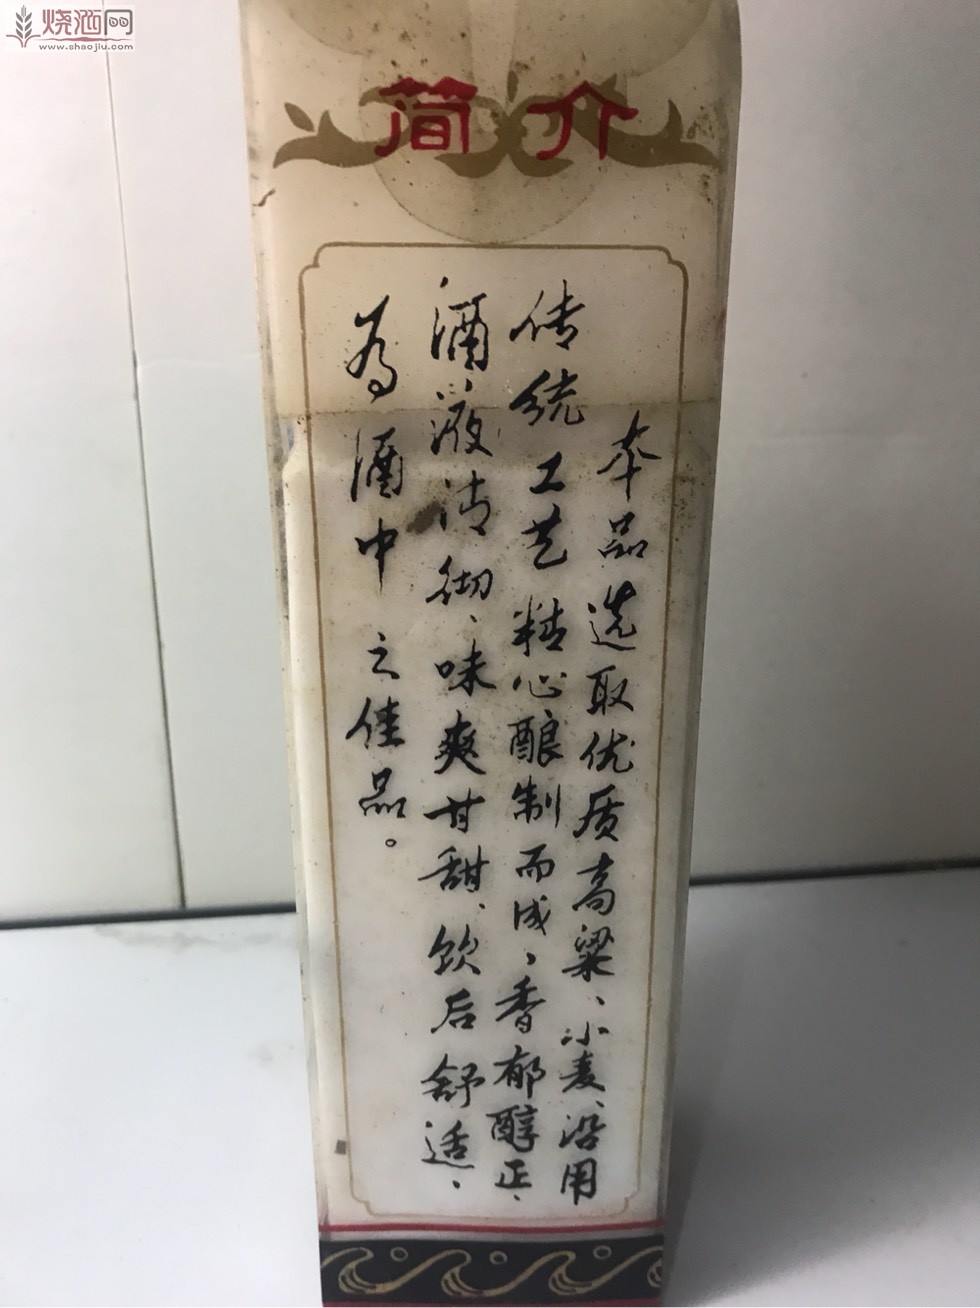 烧酒网
www.shaojiu.com
简介
本品选取优质高粱、小麦、沿用
传统工艺精心酿制而成、香郁醇正、
酒液清彻、味爽甘甜、饮后舒适、
为酒中之佳品。